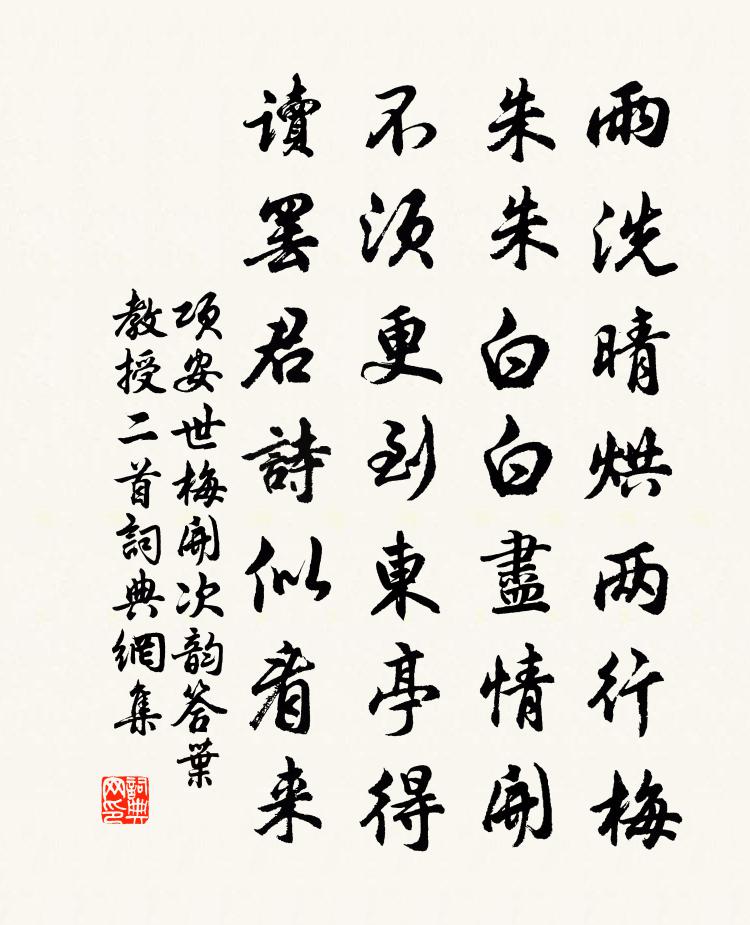 雨洗晴烘两行梅
朱朱白白盡情開
不須更到東亭得
讀罷君詩似看来
項安世梅開次韵答葉
教授二首詞典網集
詞典网印